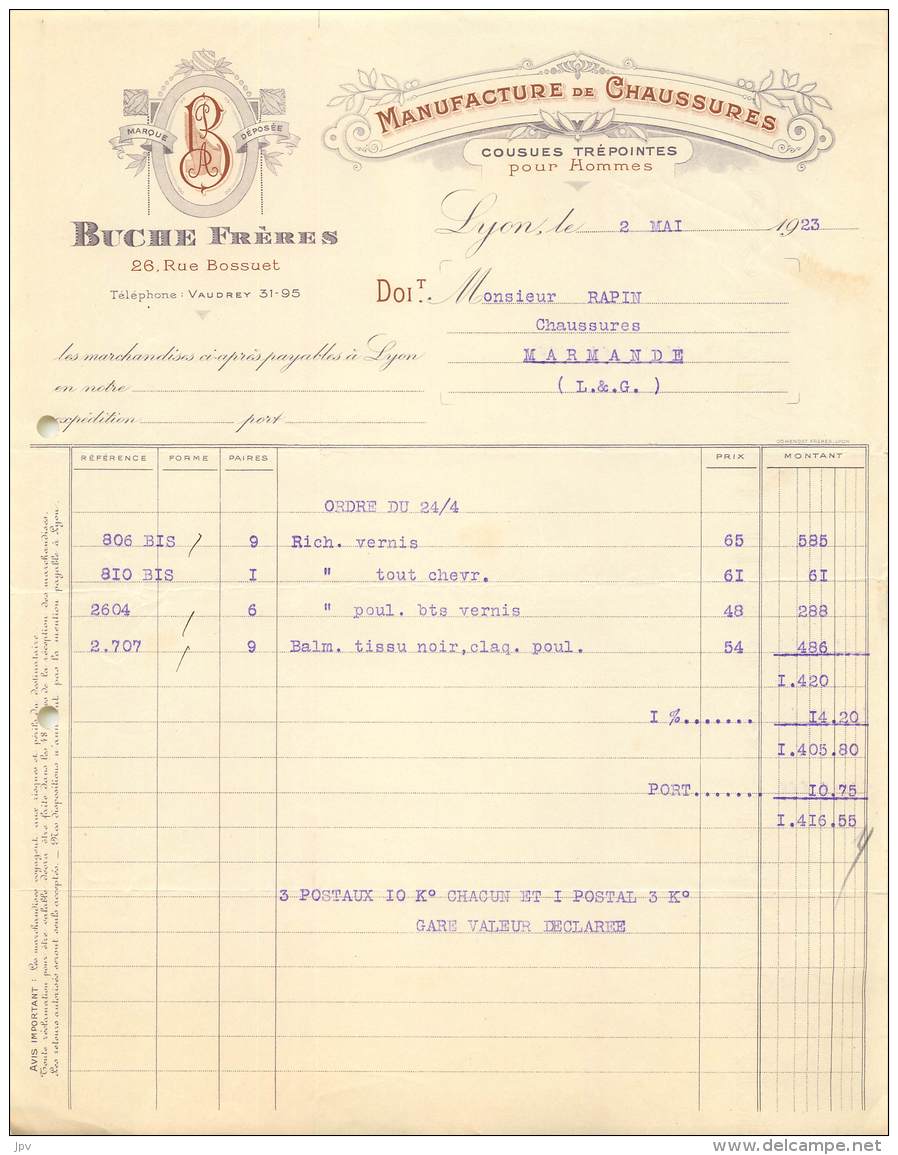 MARQUE DÉPOSÉE
BRA
MANUFACTURE DE CHAUSSURES
COUSUES TRÉPOINTES
pour Hommes
BUCHE FRÈRES
26, Rue Bossuet
Téléphone : VAUDREY 31-95
Lyon, le 2 MAI 1923
DOIT. Monsieur RAPIN
Chaussures
MARMANDE
( L.&.G. )
les marchandises ci-après payables à Lyon
en notre
expédition port
RÉFÉRENCE FORME PAIRES PRIX MONTANT
ORDRE DU 24/4
806 BIS / 9 Rich. vernis 65 585
810 BIS I " tout chevr. 6I 6I
2604 / 6 " poul. bts vernis 48 288
2.707 / 9 Balm. tissu noir,claq. poul. 54 486
I.420
I %....... I4.20
I.405.80
PORT....... I0.75
I.4I6.55
3 POSTAUX IO Kº CHACUN ET I POSTAL 3 Kº
GARE VALEUR DECLAREE
AVIS IMPORTANT : Les marchandises voyagent aux risques et périls du destinataire.
Toute réclamation pour être valable devra être faite dans les 48 de la réception des marchandises.
Les retours autorisés seront seuls acceptés. _ Nos dispositions n'annulent pas la mention payable à Lyon.
jpv
delcampe.net